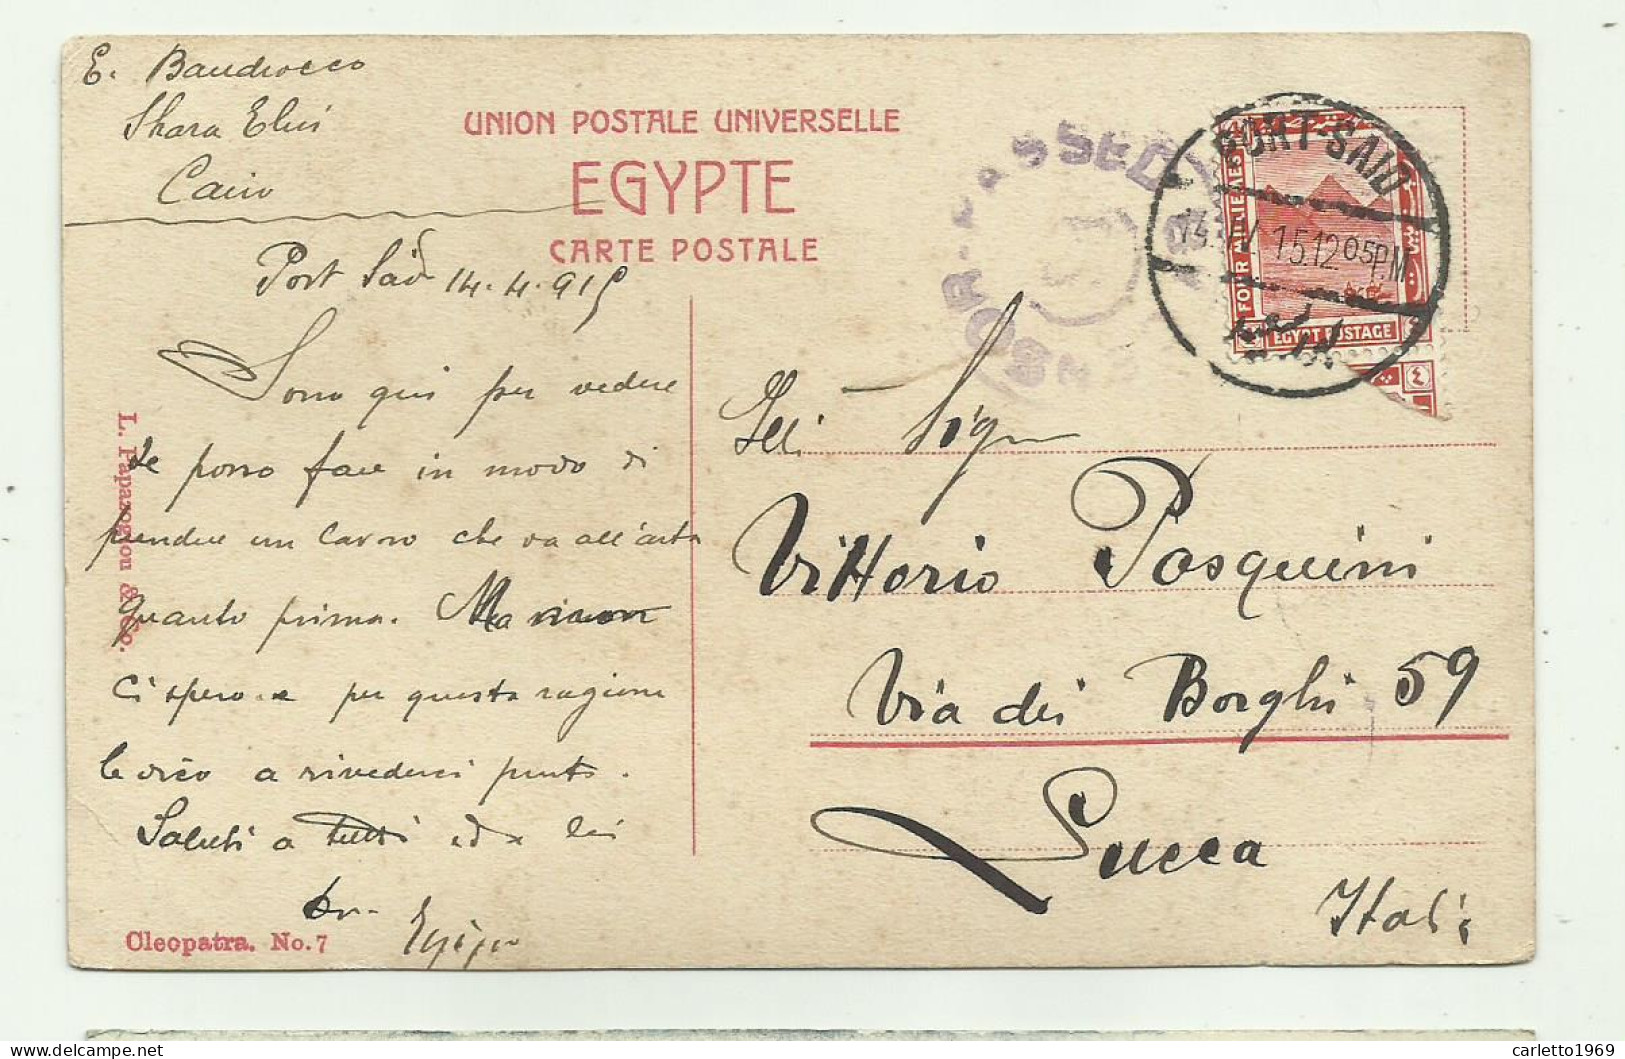 E. Baudrocco
Shara Elui
Cairo
UNION POSTALE UNIVERSELLE
EGYPTE
CARTE POSTALE
Port Said 14.4.915
Sono qui per vedere
se posso fare in modo di
prendere un lavoro che va all'asta
quanto prima. Ma
ci spero e per questa ragione
le dico a rivederci presto.
Saluti a tutti ed a lei
L. Papazoglou & Co.
Cleopatra. No. 7
PASSED
CENSOR
PORT-SAID
14.IV.15.12 05 P.M
FOUR MILLIEMES
EGYPT POSTAGE
Sig
Vittorio Pasquini
Via dei Borghi 59
Lucca
Italia
carletto1969